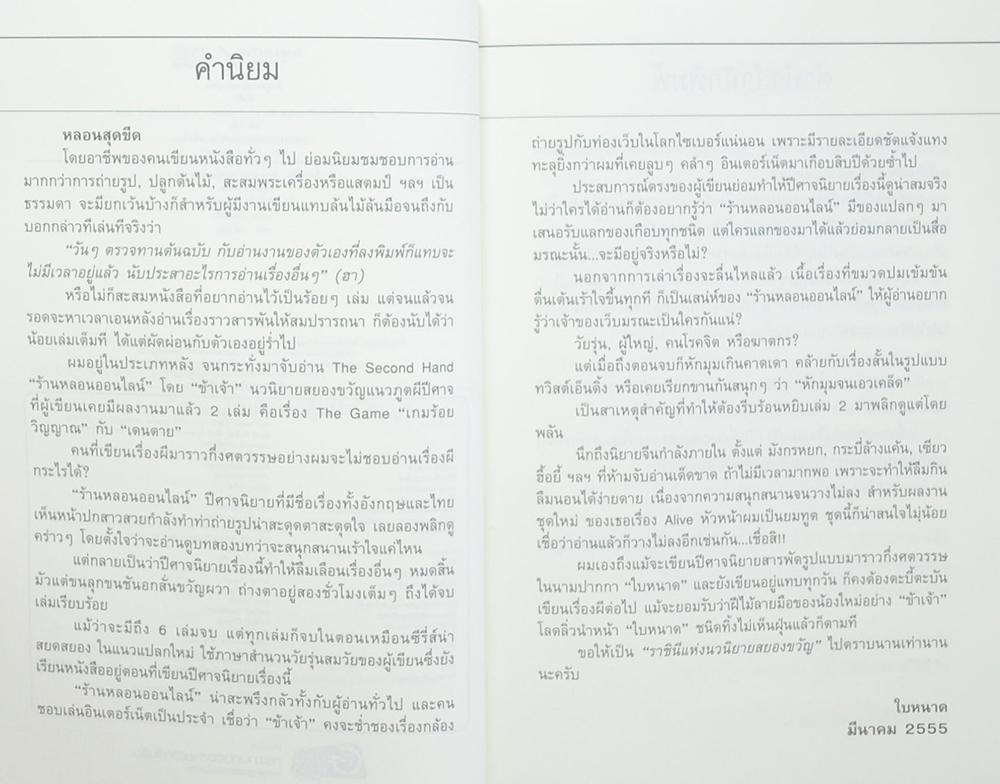 คำนิยม
หลอนสุดขีด
โดยอาชีพของคนเขียนหนังสือทั่วๆ ไป ย่อมนิยมชมชอบการอ่าน
มากกว่าการถ่ายรูป, ปลูกต้นไม้, สะสมพระเครื่องหรือแสตมป์ ฯลฯ เป็น
ธรรมดา จะมียกเว้นบ้างก็สำหรับผู้มีงานเขียนแทบล้นไม้ล้นมือจนถึงกับ
บอกกล่าวทีเล่นทีจริงว่า
“วันๆ ตรวจทานต้นฉบับ กับอ่านงานของตัวเองที่ลงพิมพ์ก็แทบจะ
ไม่มีเวลาอยู่แล้ว นับประสาอะไรการอ่านเรื่องอื่นๆ” (ฮา)
หรือไม่ก็สะสมหนังสือที่อยากอ่านไว้เป็นร้อยๆ เล่ม แต่จนแล้วจน
รอดจะหาเวลาเอนหลังอ่านเรื่องราวสารพันให้สมปรารถนา ก็ต้องนับได้ว่า
น้อยเล่มเต็มที ได้แต่ผัดผ่อนกับตัวเองอยู่ร่ำไป
ผมอยู่ในประเภทหลัง จนกระทั่งมาจับอ่าน The Second Hand
“ร้านหลอนออนไลน์” โดย “ข้าเจ้า” นวนิยายสยองขวัญแนวภูตผีปีศาจ
ที่ผู้เขียนเคยมีผลงานมาแล้ว 2 เล่ม คือเรื่อง The Game “เกมร้อย
วิญญาณ” กับ “เดนตาย”
คนที่เขียนเรื่องผีมาราวกึ่งศตวรรษอย่างผมจะไม่ชอบอ่านเรื่องผี
กระไรได้?
“ร้านหลอนออนไลน์” ปีศาจนิยายที่มีชื่อเรื่องทั้งอังกฤษและไทย
เห็นหน้าปกสาวสวยกำลังทำท่าถ่ายรูปน่าสะดุดตาสะดุดใจ เลยลองพลิกดู
คร่าวๆ โดยตั้งใจว่าจะอ่านดูบทสองบทว่าจะสนุกสนานเร้าใจแค่ไหน
แต่กลายเป็นว่าปีศาจนิยายเรื่องนี้ทำให้ลืมเลือนเรื่องอื่นๆ หมดสิ้น
มัวแต่ขนลุกขนชันอกสั่นขวัญผวา ถ่างตาอยู่สองชั่วโมงเต็มๆ ถึงได้จบ
เล่มเรียบร้อย
แม้ว่าจะมีถึง 6 เล่มจบ แต่ทุกเล่มก็จบในตอนเหมือนซีรี่ส์น่า
สยดสยอง ในแนวแปลกใหม่ ใช้ภาษาสำนวนวัยรุ่นสมวัยของผู้เขียนซึ่งยัง
เรียนหนังสืออยู่ตอนที่เขียนปีศาจนิยายเรื่องนี้
“ร้านหลอนออนไลน์” น่าสะพรึงกลัวทั้งกับผู้อ่านทั่วไป และคน
ชอบเล่นอินเตอร์เน็ตเป็นประจำ เชื่อว่า “ข้าเจ้า” คงจะช่ำชองเรื่องกล้อง
ถ่ายรูปกับท่องเว็บในโลกไซเบอร์แน่นอน เพราะมีรายละเอียดชัดแจ้งแทง
ทะลุยิ่งกว่าผมที่เคยลูบๆ คลำๆ อินเตอร์เน็ตมาเกือบสิบปีด้วยซ้ำไป
ประสบการณ์ตรงของผู้เขียนย่อมทำให้ปีศาจนิยายเรื่องนี้ดูน่าสมจริง
ไม่ว่าใครได้อ่านก็ต้องอยากรู้ว่า “ร้านหลอนออนไลน์” มีของแปลกๆ มา
เสนอรับแลกของเกือบทุกชนิด แต่ใครแลกของมาได้แล้วย่อมกลายเป็นสื่อ
มรณะนั้น...จะมีอยู่จริงหรือไม่?
นอกจากการเล่าเรื่องจะลื่นไหลแล้ว เนื้อเรื่องที่ขมวดปมเข้มข้น
ตื่นเต้นเร้าใจขึ้นทุกที ก็เป็นเสน่ห์ของ “ร้านหลอนออนไลน์” ให้ผู้อ่านอยาก
รู้ว่าเจ้าของเว็บมรณะเป็นใครกันแน่?
วัยรุ่น, ผู้ใหญ่, คนโรคจิต หรือฆาตกร?
แต่เมื่อถึงตอนจบก็หักมุมเกินคาดเดา คล้ายกับเรื่องสั้นในรูปแบบ
ทวิสต์เอ็นดิ้ง หรือเคยเรียกขานกันสนุกๆ ว่า “หักมุมจนเอวเคล็ด”
เป็นสาเหตุสำคัญที่ทำให้ต้องรีบร้อนหยิบเล่ม 2 มาพลิกดูแต่โดย
พลัน
นึกถึงนิยายจีนกำลังภายใน ตั้งแต่ มังกรหยก, กระบี่ล้างแค้น, เซียว
ฮื้อยี้ ฯลฯ ที่ห้ามจับอ่านเด็ดขาด ถ้าไม่มีเวลามากพอ เพราะจะทำให้ลืมกิน
ลืมนอนได้ง่ายดาย เนื่องจากความสนุกสนานจนวางไม่ลง สำหรับผลงาน
ชุดใหม่ ของเธอเรื่อง Alive หัวหน้าผมเป็นยมทูต ชุดนี้ก็น่าสนใจไม่น้อย
เชื่อว่าอ่านแล้วก็วางไม่ลงอีกเช่นกัน...เชื่อสิ!!
ผมเองถึงแม้จะเขียนปีศาจนิยายสารพัดรูปแบบมาราวกึ่งศตวรรษ
ในนามปากกา “ใบหนาด” และยังเขียนอยู่แทบทุกวัน ก็คงต้องตะบี้ตะบัน
เขียนเรื่องผีต่อไป แม้จะยอมรับว่าฝีไม้ลายมือของน้องใหม่อย่าง “ข้าเจ้า”
โลดลิ่วนำหน้า “ใบหนาด” ชนิดทิ้งไม่เห็นฝุ่นแล้วก็ตามที
ขอให้เป็น “ราชินีแห่งนวนิยายสยองขวัญ” ไปตราบนานเท่านาน
นะครับ
ใบหนาด
มีนาคม 2555